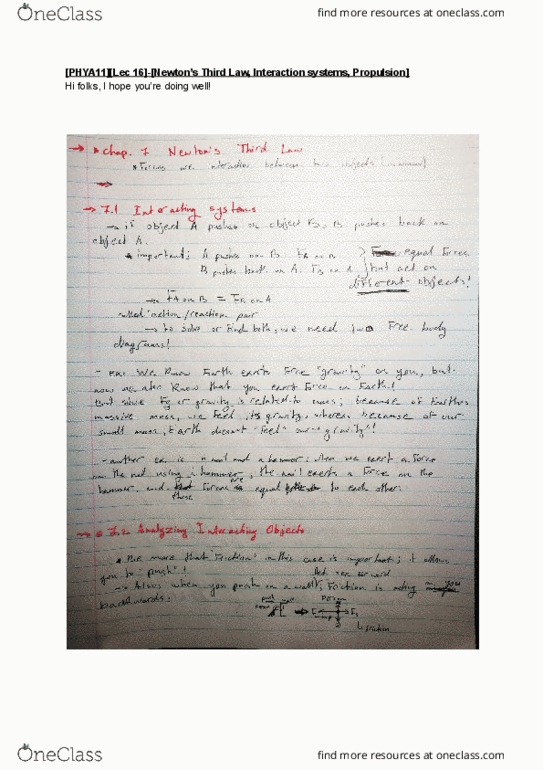 OneClass
find more resources at oneclass.com
[PHYA11][Lec 16]-[Newton's Third Law, Interaction systems, Propulsion]
Hi folks, I hope you're doing well!
Chap. 7 Newton's Third Law
Forces are interaction between two objects
7.1 Interacting systems
→ if object A pushes on object B, B pushes back on
object A.
* important: A pushes on B. F A on B } equal Force
B pushes back on A. F B on A } but act on
different objects!
→ F A on B = F B on A
called action/reaction pair
→ to solve or find both, we need two Free body
diagrams!
- ex: We Know Earth exerts Force "gravity" on you, but
now we also Know that you exert Force on Earth!
But since Fg or gravity is related to mass; because of Earth's
massive mass, we feel its gravity, whereas because of our
small mass, Earth doesn't "feel" our "gravity"!
- another ex. is a nail and a hammer: when we exert a Force
on the nail using hammer, the nail exerts a Force on the
hammer, and these Forces are equal to each other.
7.2 Analyzing Interacting Objects
that "Friction" in this case is important; it allows
you to "push"!
→ when you push on a wall, Friction is acting
backwards.
OneClass
find more resources at oneclass.com